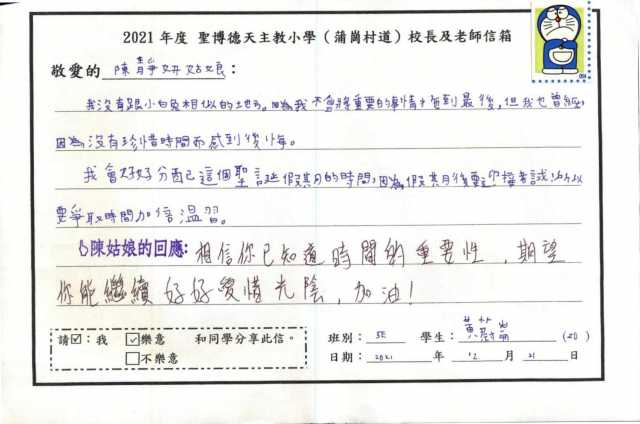 2021 年度 聖博德天主教小學（蒲崗村道）校長及老師信箱
敬愛的 陳靜妍姑娘：
我沒有跟小白兔相似的地方。因為我不會將重要的事情拖到最後，但我也曾經
因為沒有珍惜時間而感到後悔。
我會好好分配已這個聖誕假期的時間，因為假期後要迎接考試，所以
要爭取時間加倍溫習。
陳姑娘的回應: 相信你已知道時間的重要性，期望
你能繼續好好愛惜光陰，加油！
請☑：我 ☑樂意 和同學分享此信。
□不樂意
班別： 5E 學生： 黃 (20)
日期： 2021 年 12 月 21 日